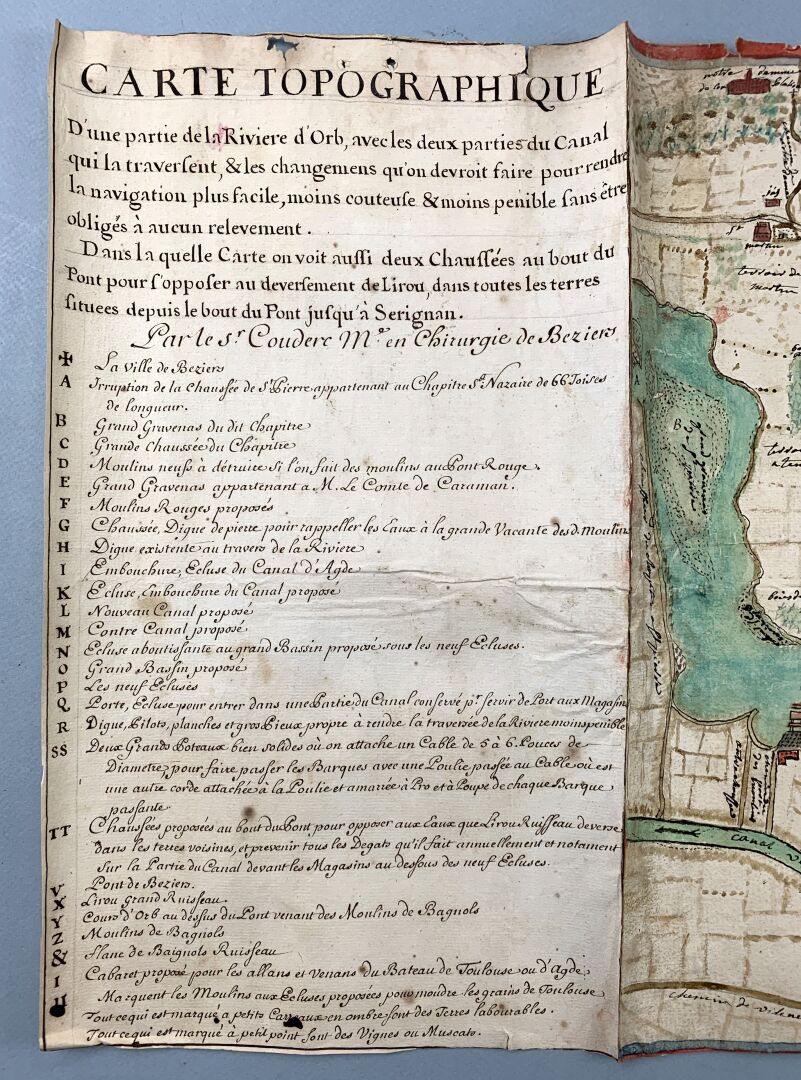 CARTE TOPOGRAPHIQUE
D'une partie de la Riviere d'Orb, avec les deux parties du Canal
qui la traversent, & les changemens qu'on devroit faire pour rendre
la navigation plus facile, moins couteuse & moins penible sans être
obligés à aucun relevement.
Dans la quelle Carte on voit aussi deux Chaussées au bout du
Pont pour s'opposer au deversement de Lirou, dans toutes les terres
situees depuis le bout du Pont jusqu'à Serignan.
Par le Sr. Couderc Me. en Chirurgie de Beziers
✠ La Ville de Beziers
A Irruption de la chaussée de St. Pierre appartenant au Chapitre St. Nazaire de 66 Toises
de longueur.
B Grand Gravenas du dit Chapitre
C Grande Chaussée du Chapitre
D Moulins neufs à détruire si l'on fait des moulins au Pont Rouge.
E Grand Gravenas appartenant a M. Le Comte de Caraman.
F Moulins Rouges proposés
G Chaussée, Digue de pierre pour rappeller les Eaux à la grande Vacante des d. Moulins
H Digue existente au travers de la Riviere
I Embouchure, Ecluse du Canal d'Agde
K Ecluse, Embouchure du Canal proposé
L Nouveau Canal proposé
M Contre Canal proposé
N Ecluse aboutissante au grand Bassin proposé sous les neuf Ecluses.
O Grand Bassin proposé
P Les neuf Ecluses
Q Porte, Ecluse pour entrer dans une Partie du Canal conservé pr. servir de Port aux Magasins
R Digue, Pilots, planches et gros Pieux propre à rendre la traversée de la Riviere moins penible
SS Deux Grands Poteaux bien solides où on attache un Cable de 5 à 6. Pouces de
Diametre, pour faire passer les Barques avec une Poulie passée au Cable où est
une autre corde attachée à la Poulie et amarrée à Pro et à Poupe de chaque Barque
passante.
TT Chaussées proposées au bout du Pont, pour opposer aux Eaux que Lirou Ruisseau deverse
dans les terres voisines, et prevenir tous les Degats qu'il fait annuellement et notament
sur la Partie du Canal devant les Magasins au dessous des neuf Ecluses.
V Pont de Beziers.
X Lirou grand Ruisseau.
Y Cours d'Orb au dessus du Pont venant des Moulins de Bagnols
Z Moulins de Bagnols
& Flane de Baignols Ruisseau
I Cabaret proposé pour les allans et venans du Bateau de Toulouse ou d'Agde,
Marquent les Moulins aux Ecluses proposées pour moudre les grains de Toulouse
Tout ce qui est marqué a petits Carreaux en ombre sont des Terres labourables.
Tout ce qui est marqué à petit point sont des Vignes ou Muscats.
notre damme
St
martin
terroir de
martin
B
canal
chemin de